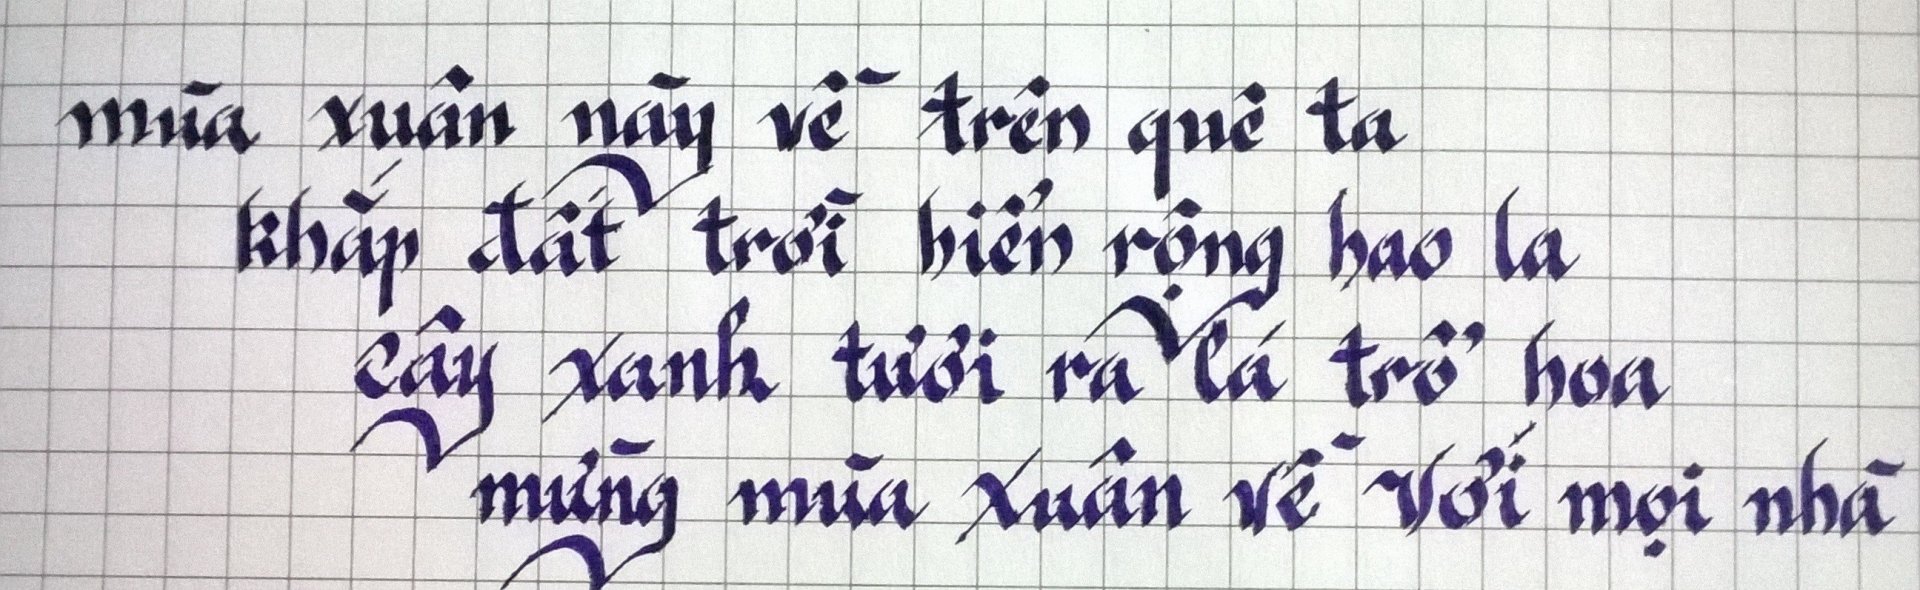 mùa xuân này về trên quê ta
khắp đất trời biển rộng bao la
cây xanh tươi ra lá trổ hoa
mừng mùa xuân về với mọi nhà